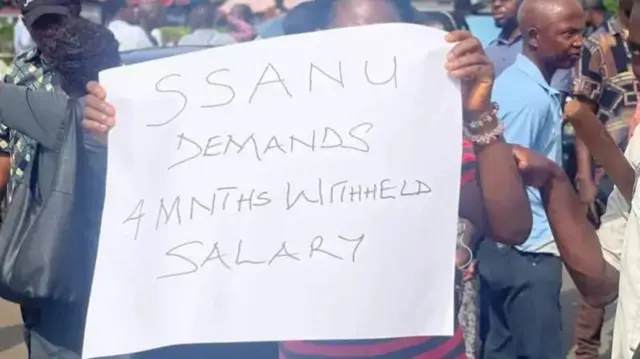 SSANU
DEMANDS
4 MNTHS WITHHELD
SALARY